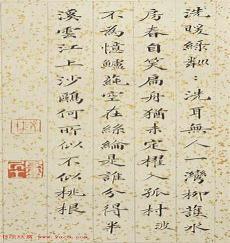 洗暖綠
洗耳無人一灣柳護水
房春自笑扁舟猶未定櫂入孤村波
不為憶鱸蓴空在絲綸是誰分得半
溪雲江上沙鷗何所似不似桃根